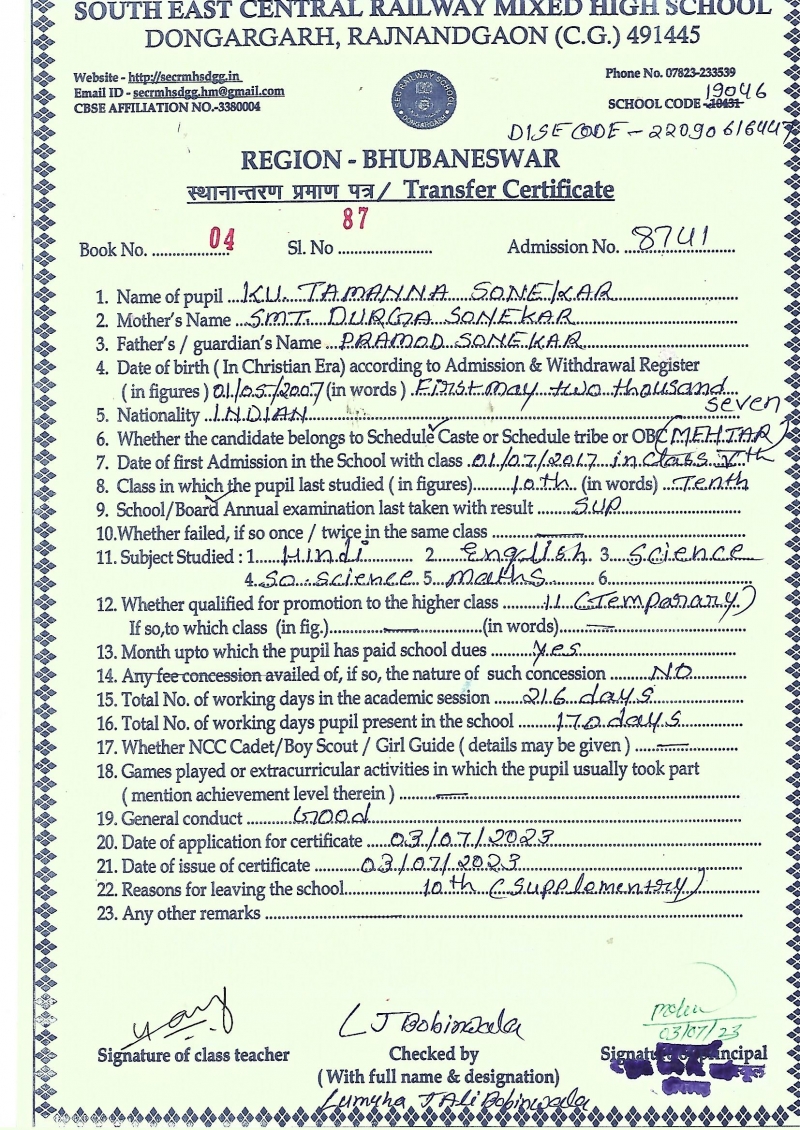 SOUTH EAST CENTRAL RAILWAY MIXED HIGH SCHOOL
DONGARGARH, RAJNANDGAON (C.G.) 491445
Website - http://secrmhsdgg.in
Email ID - secrmhsdgg.hm@gmail.com
CBSE AFFILIATION NO.-3380004
SEC RAILWAY SCHOOL DONGARGARH
Phone No. 07823-233539
19046
SCHOOL CODE - 10431
DISE CODE - 22090616447
REGION - BHUBANESWAR
स्थानान्तरण प्रमाण पत्र / Transfer Certificate
Book No. 04 Sl. No 87 Admission No. 8741
1. Name of pupil KU. TAMANNA SONEKAR
2. Mother's Name SMT. DURGA SONEKAR
3. Father's / guardian's Name PRAMOD SONEKAR
4. Date of birth ( In Christian Era) according to Admission & Withdrawal Register
( in figures ) 01/05/2007 (in words ) First may two thousand
seven
5. Nationality INDIAN
6. Whether the candidate belongs to Schedule Caste or Schedule tribe or OBC (MEHTAR)
7. Date of first Admission in the School with class 01/07/2017 in class Vth
8. Class in which the pupil last studied ( in figures) 10th (in words) Tenth
9. School/Board Annual examination last taken with result SUP
10. Whether failed, if so once / twice in the same class
11. Subject Studied : 1. Hindi 2 English 3 science
4. so. science 5. maths 6.
12. Whether qualified for promotion to the higher class 11 (Temparary)
If so,to which class (in fig.) (in words)
13. Month upto which the pupil has paid school dues yes
14. Any fee concession availed of, if so, the nature of such concession NO
15. Total No. of working days in the academic session 216 days
16. Total No. of working days pupil present in the school 170 days
17. Whether NCC Cadet/Boy Scout / Girl Guide ( details may be given )
18. Games played or extracurricular activities in which the pupil usually took part
( mention achievement level therein )
19. General conduct Good
20. Date of application for certificate 03/07/2023
21. Date of issue of certificate 03/07/2023
22. Reasons for leaving the school 10th (supplementry)
23. Any other remarks
L J Bobinwala
03/07/23
Signature of class teacher Checked by Signat ncipal
( With full name & designation)
J Ali Bobinwala